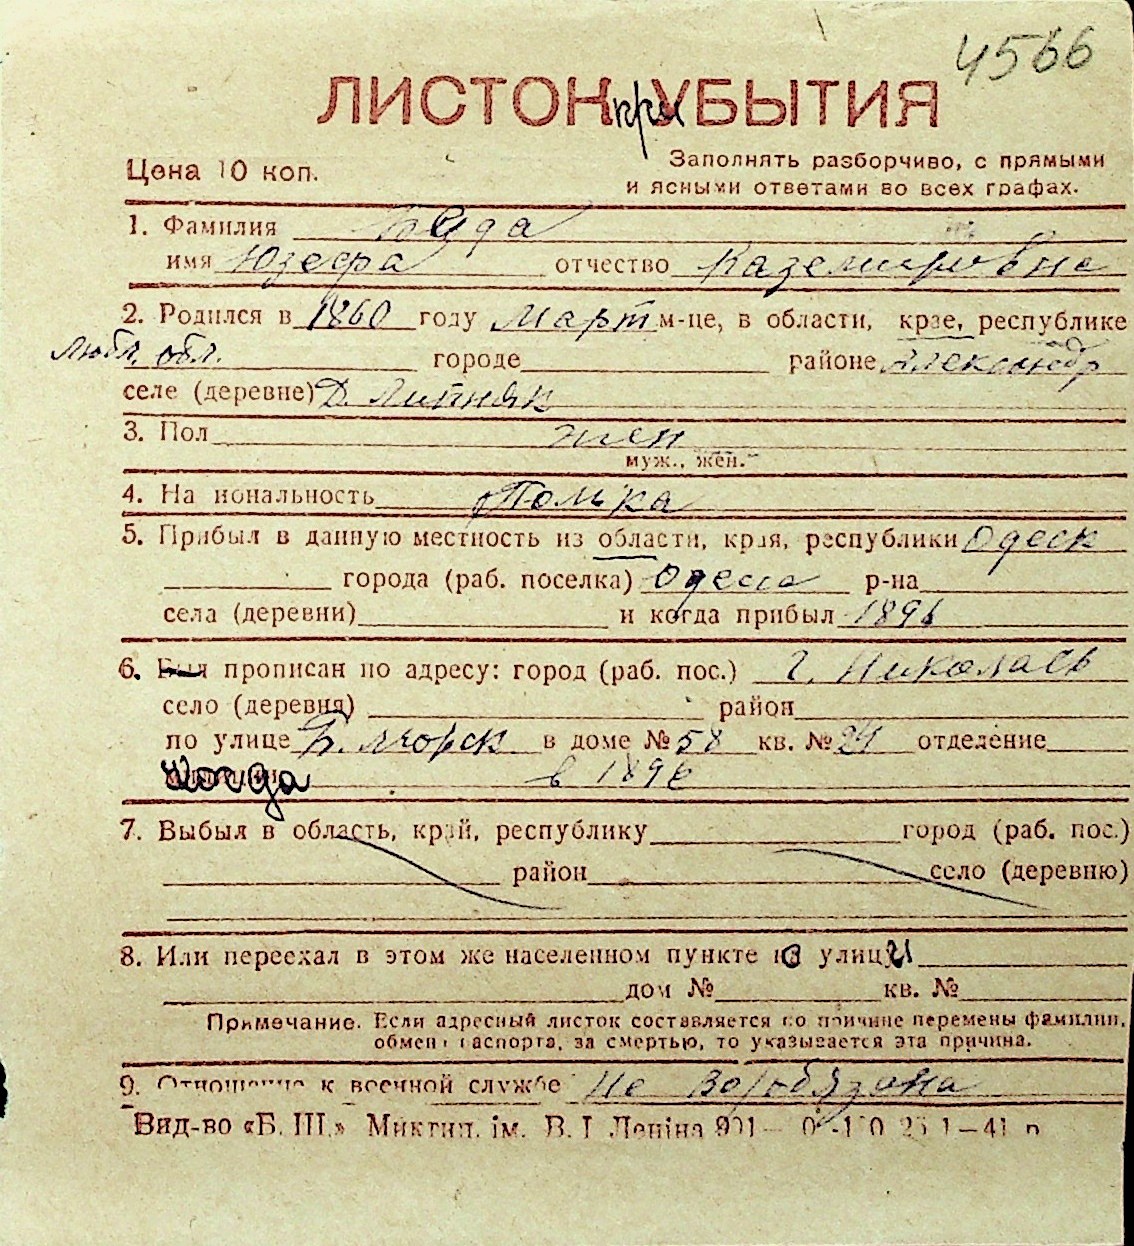 4566
ЛИСТОК при УБЫТИЯ
Цена 10 коп.
Заполнять разборчиво, с прямыми
и ясными ответами во всех графах.
1. Фамилия
имя Юзефа отчество Каземировна
2. Родился в 1860 году Март м-це, в области, крае, республике
Любл. обл. городе районе Александр
селе (деревне) Д. Липняк
3. Пол жен
муж., жен.
4. На иональность Полька
5. Прибыл в данную местность из области, края, республики Одеск
города (раб. поселка) Одесса р-на
села (деревни) и когда прибыл 1896
6. Был прописан по адресу: город (раб. пос.) г. Николаев
село (деревня) район
по улице Б. Морск в доме № 58 кв. № 24 отделение
когда в 1896
7. Выбыл в область, край, республику город (раб. пос.)
район село (деревню)
8. Или переехал в этом же населенном пункте с улицы
дом № кв. №
Примечание. Если адресный листок составляется по причине перемены фамилии,
обмен паспорта, за смертью, то указывается эта причина.
9. Отношение к военной службе Не вообязана
Вид-во «Б. Ш.» Миктип. ім. В. І Леніна